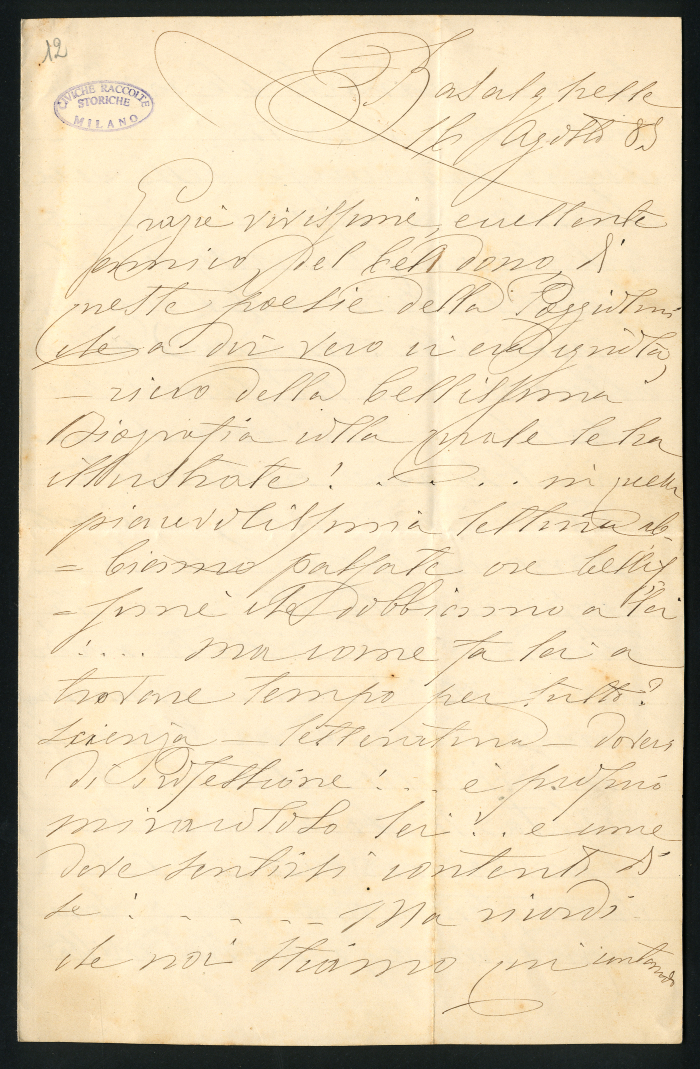 12
CIVICHE RACCOLTE
STORICHE
MILANO
Basalghelle
16 Agosto 85
Grazie vivissime, eccellente
amico, del bel dono, di
queste poesie della
che a dir vero ci era
- rico della bellissima
Biografia colla quale le ha
illustrate! . . . . in quella
piacevolissima lettura ab-
= biamo passate ore bellis
= sime che dobbiamo a lei
! . . . . ma come fa lei a
trovare tempo per tutto?
Scienza — letteratura — doveri
di Professione! . . . è proprio
miracoloso lei! . . e come
deve sentirsi contento di
se! - - - - - Ma ricordi
che noi stiamo qui contando